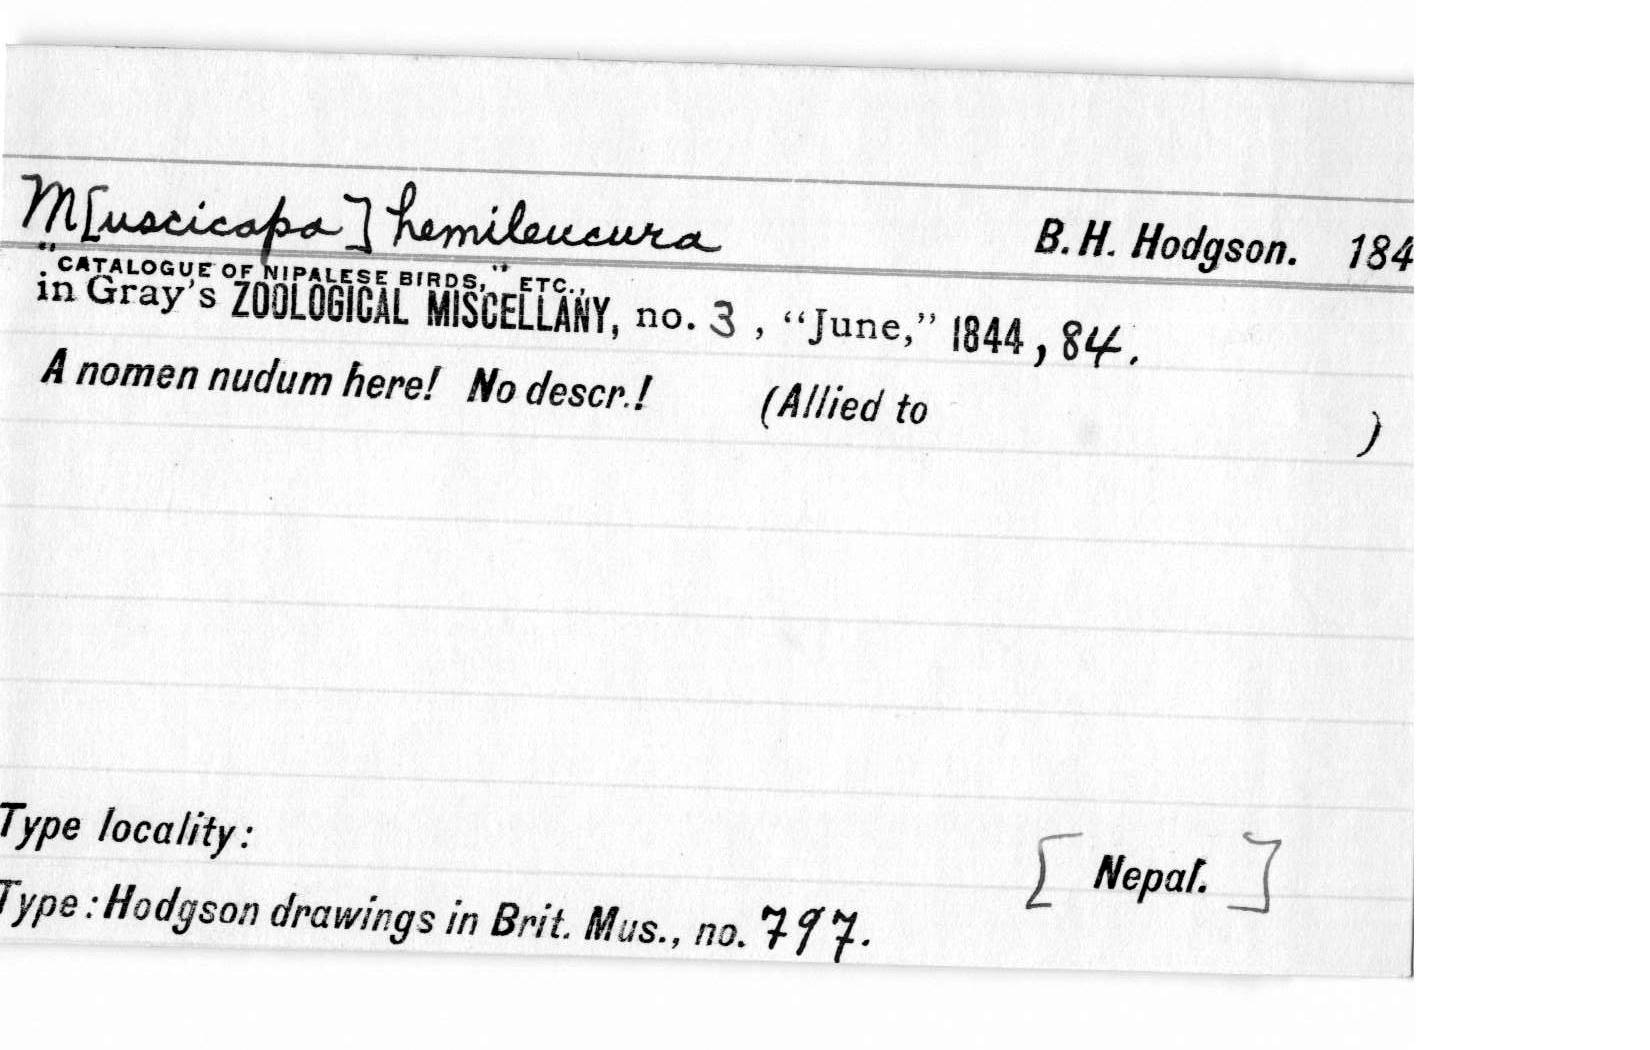 M[uscicapa] hemileucura B.H. Hodgson. 184
"CATALOGUE OF NIPALESE BIRDS," ETC.,
in Gray's ZOOLOGICAL MISCELLANY, no. 3, "June," 1844, 84.
A nomen nudum here! No descr.! (Allied to )
Type locality: [Nepal.]
Type: Hodgson drawings in Brit. Mus., no. 797.